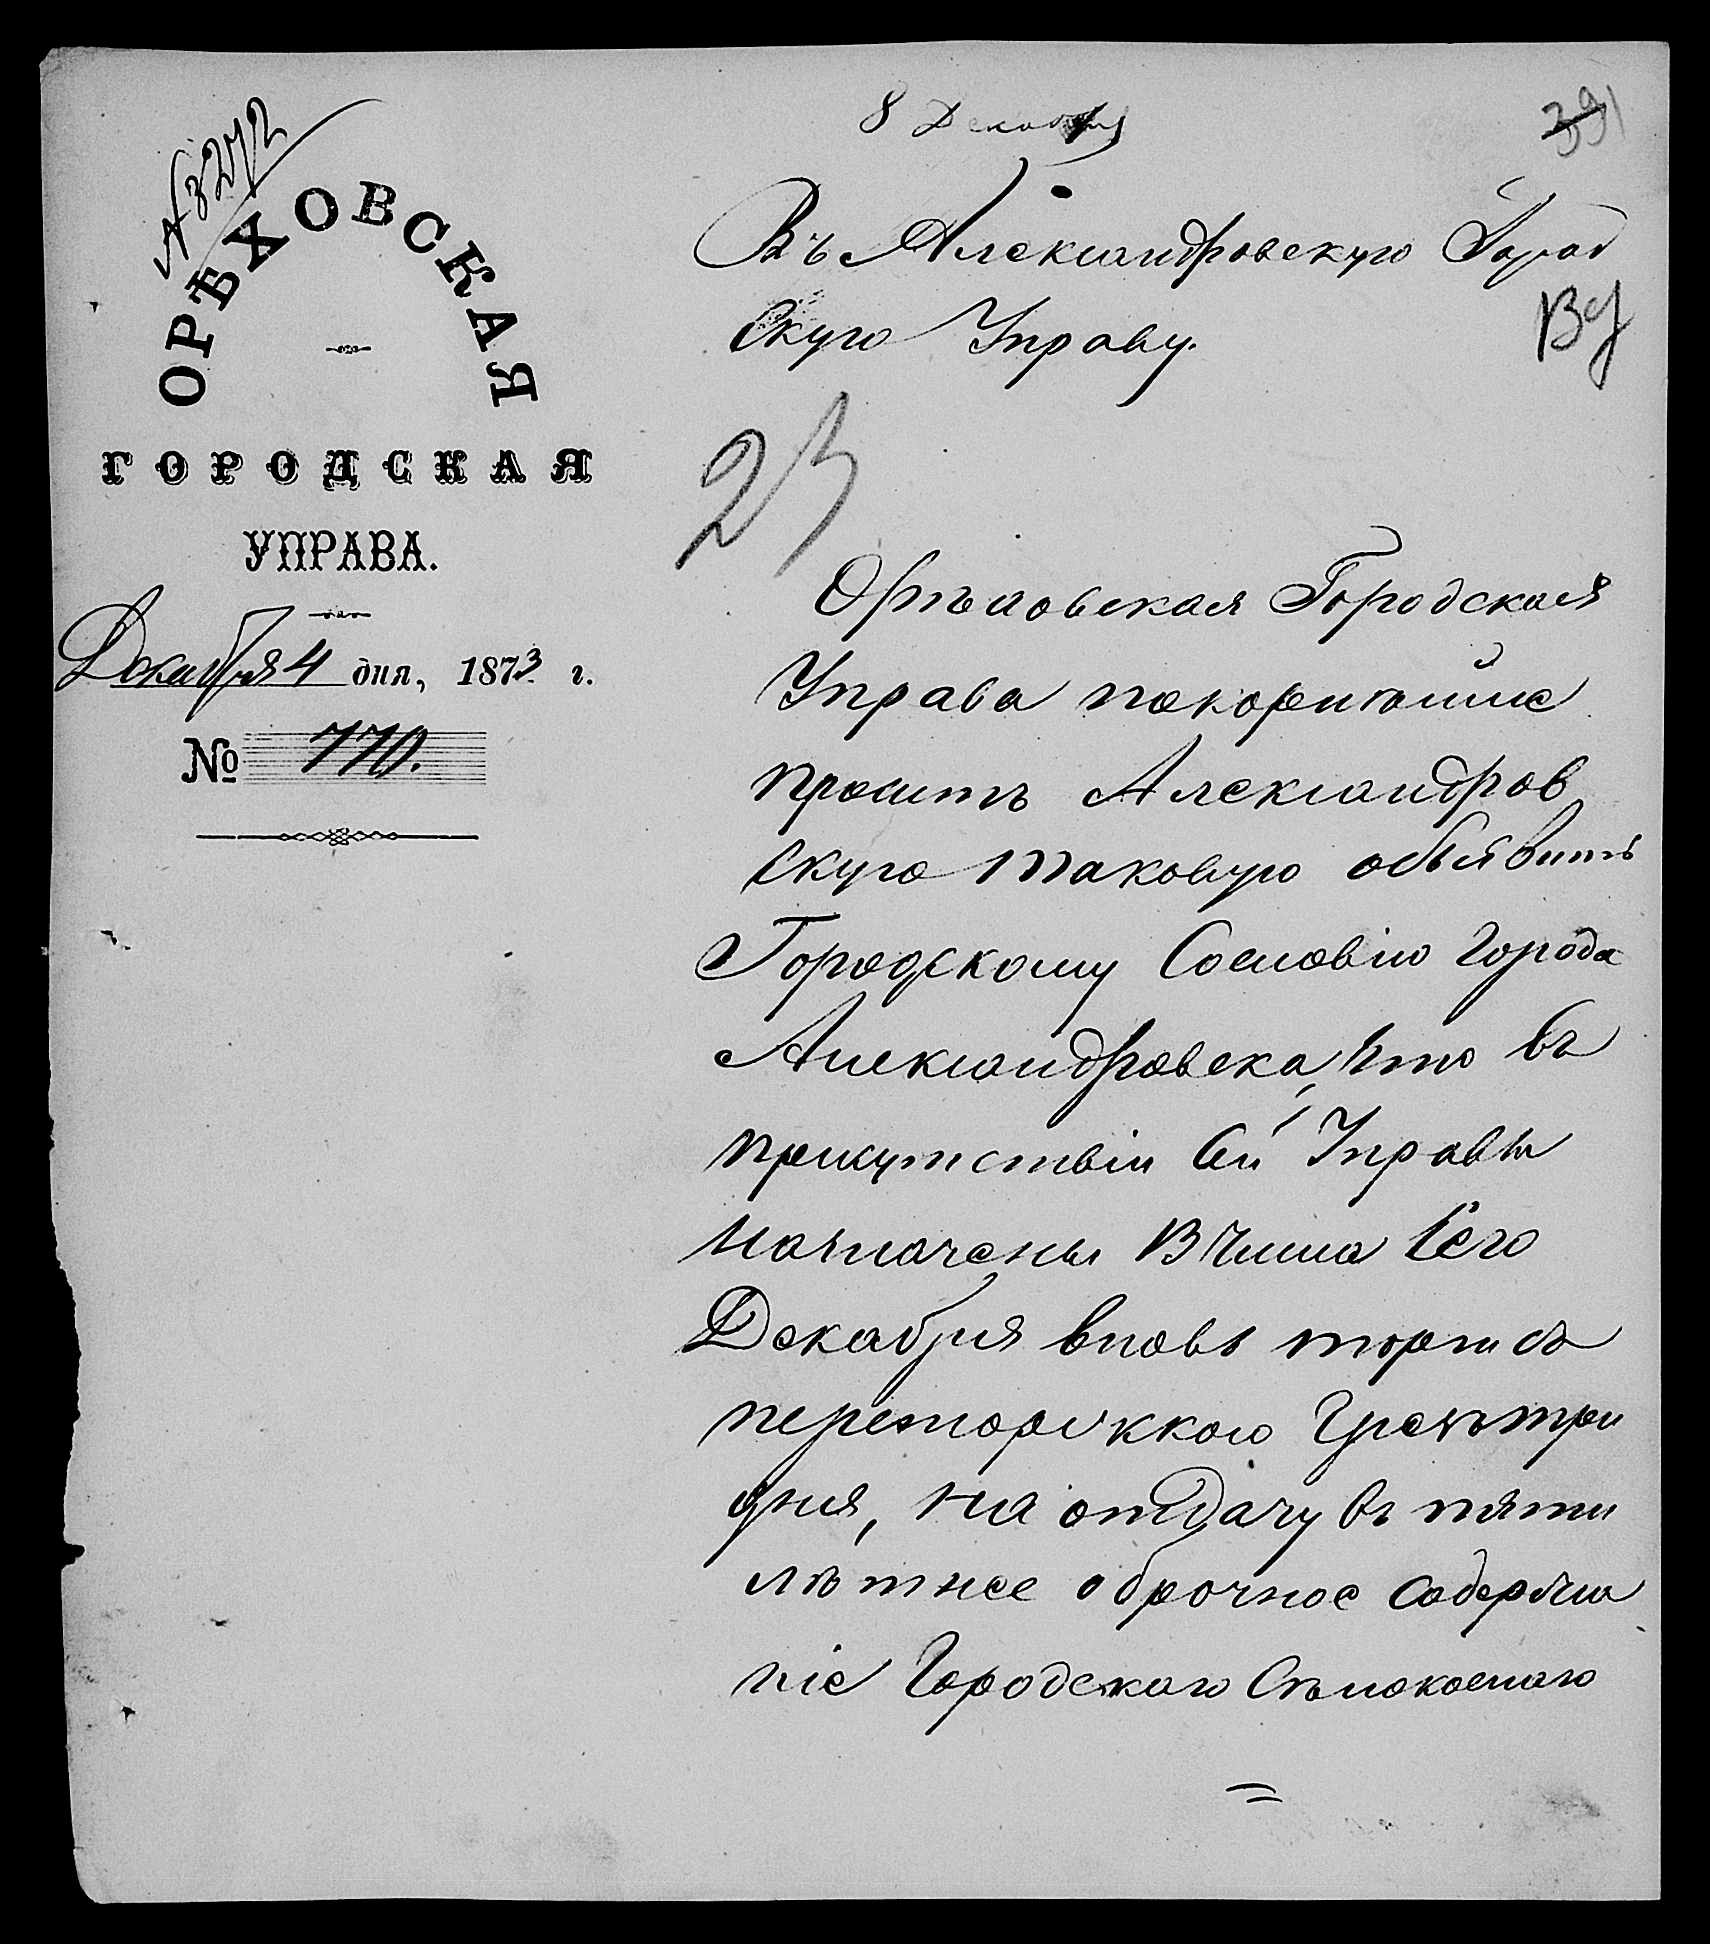 № 3272
8 Декабря
391
ОРѢХОВСКАЯ
ГОРОДСКАЯ
УПРАВА.
Декабря 4 дня, 1873 г.
№ 770.
Въ Александровскую Город
скую Управу.
23
Орѣховская Городская
Управа покорнѣйше
проситъ Александров
скую таковую объявить
Городскому Сословію города
Александровска, что въ
присутствіи сей Управы
назначены В числа сего
Декабря вновь торги съ
переторжкою чрезъ три
дня, на отдачу въ пяти
лѣтнее оброчное содержа
ніе Городского Сѣнокоснаго